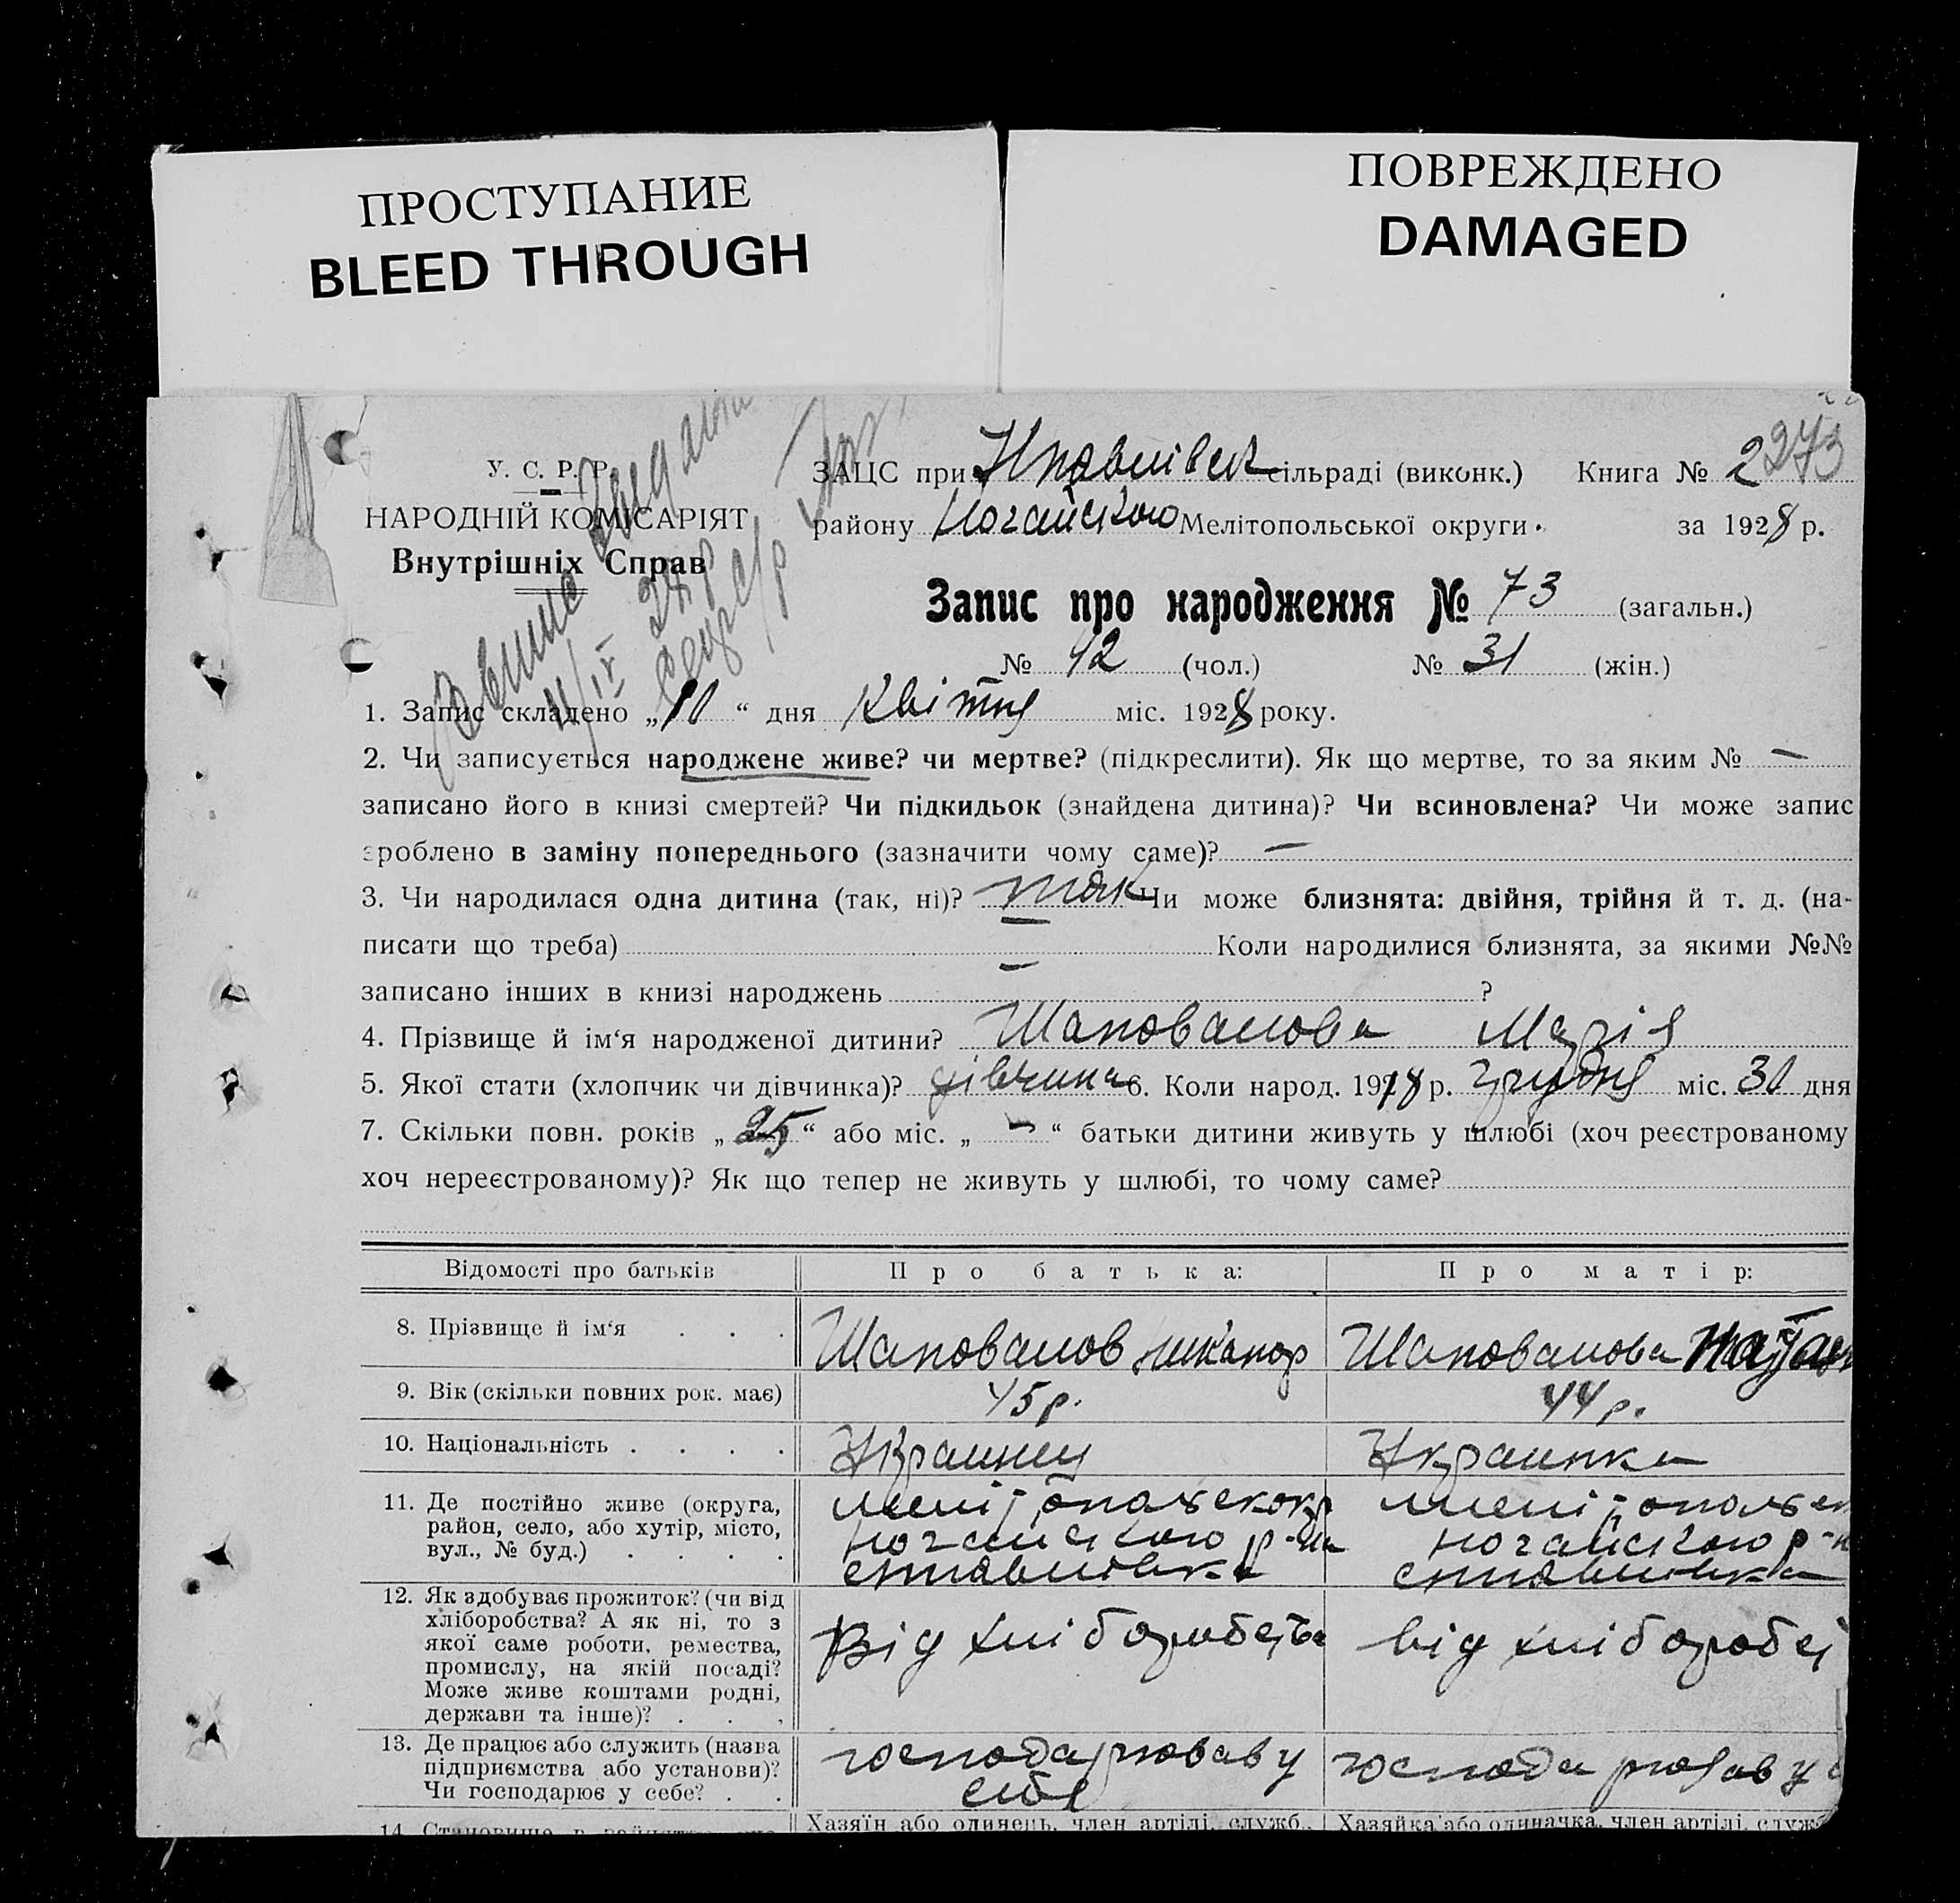 ПРОСТУПАНИЕ
BLEED THROUGH
ПОВРЕЖДЕНО
DAMAGED
У. С. Р. Р.
НАРОДНІЙ КОМІСАРІЯТ
Внутрішніх Справ
ЗАЦС при сільраді (виконк.) Книга № 2 273
району Ногайского Мелітопольської округи. за 1928 р.
Запис про народження № 73 (загальн.)
№ 42 (чол.) № 31 (жін.)
1. Запис складено „10“ дня Квітня міс. 1928 року.
2. Чи записується народжене живе? чи мертве? (підкреслити). Як що мертве, то за яким № —
записано його в книзі смертей? Чи підкидьок (знайдена дитина)? Чи всиновлена? Чи може запис
зроблено в заміну попереднього (зазначити чому саме)? —
3. Чи народилася одна дитина (так, ні)? так Чи може близнята: двійня, трійня й т. д. (на-
писати що треба) — Коли народилися близнята, за якими №№
записано інших в книзі народжень — ?
4. Прізвище й ім‘я народженої дитини? Шаповалова Марія
5. Якої стати (хлопчик чи дівчинка)? дівчина 6. Коли народ. 1918 р. Грудня міс. 30 дня
7. Скільки повн. років „25“ або міс. „—“ батьки дитини живуть у шлюбі (хоч реєстрованому
хоч нереєстрованому)? Як що тепер не живуть у шлюбі, то чому саме?
Відомості про батьків Про батька: Про матір:
8. Прізвище й ім‘я . . . Шаповалов Никанор Шаповалова
9. Вік (скільки повних рок. має) 45 р. 44 р.
10. Національність . . . . Украинец Украинка
11. Де постійно живе (округа,
район, село, або хутір, місто,
вул., № буд.) . . . .
Мелітопольск окр
Ногайского р-на
Єпавлівка
Мелітопольск
Ногайского р-н
Єпавлівка
12. Як здобуває прожиток? (чи від
хліборобства? А як ні, то з
якої саме роботи, ремества,
промислу, на якій посаді?
Може живе коштами родні,
держави та інше)? . . .
Від хліборобства
від хліборобст
13. Де працює або служить (назва
підприємства або установи)?
Чи господарює у себе? . .
господарював у
себе
господарював у
14. Становище в
Хазяїн або одинець, член артілі, служб.,
Хазяйка або одиначка, член артілі, служб